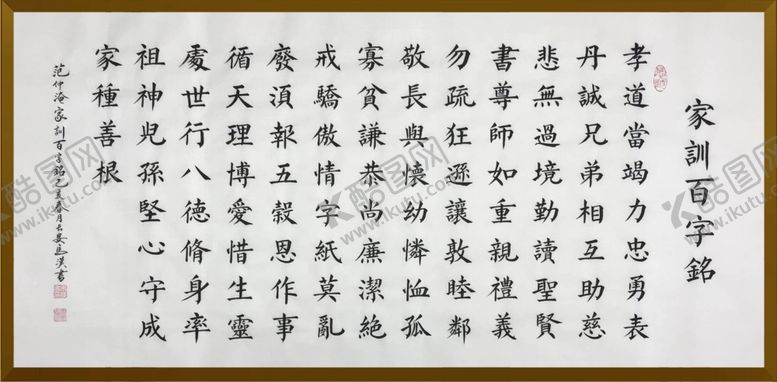 家訓百字銘
孝道當竭力忠勇表
丹誠兄弟相互助慈
悲無過境勤讀聖賢
書尊師如重親禮義
勿疏狂遜讓敦睦鄰
敬長與懷幼憐恤孤
寡貧謙恭尚廉潔絕
戒驕傲情字紙莫亂
廢須報五穀恩作事
循天理博愛惜生靈
處世行八德脩身率
祖神児孫堅心守成
家種善根
范仲淹家訓百字銘己亥春月
酷图网
www.ikutu.com
酷图网
www.ikutu.com
酷图网
www.ikutu.com